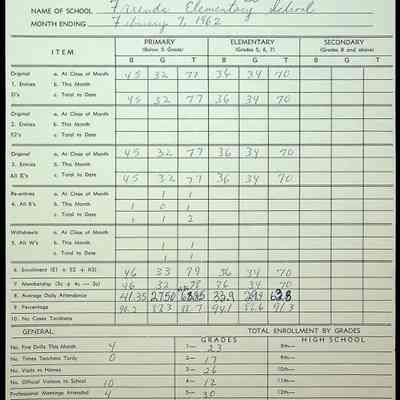 NAME OF SCHOOL Friends Elementary School
MONTH ENDING February 7, 1962
ITEM PRIMARY (Below 5 Grade) ELEMENTARY (Grades 5, 6, 7) SECONDARY (Grades 8 and above)
B G T B G T B G T
Original a. At Close of Month 45 32 77 36 34 70
1. Entries b. This Month
E1's c. Total to Date 45 32 77 36 34 70
Original a. At Close of Month
2. Entries b. This Month
E2's c. Total to Date
Original a. At Close of Month 45 32 77 36 34 70
3. Entries b. This Month
All E's c. Total to Date 45 32 77 36 34 70
Re-entries a. At Close of Month 1
4. All R's b. This Month 1 0 1
c. Total to Date 1 1 2
Withdrawals a. At Close of Month 1 1
5. All W's b. This Month
c. Total to Date 1 1
6. Enrollment (E1 + E2 + R3) 46 33 79 36 34 70
7. Membership (3c + 4c — 5c) 46 32 78 36 34 70
8. Average Daily Attendance 41.35 2750
9. Percentage
10. No Cases Tardiness
GENERAL TOTAL ENROLLMENT BY GRADES
GRADES HIGH SCHOOL
No. Fire Drills This Month 4 1— 23 8th—
No. Times Teachers Tardy 0 2— 17 9th—
No. Visits to Homes 3— 26 10th—
No. Official Visitors to School 10 4— 12 11th—
Professional Meetings Attended 4 5— 30 12th—